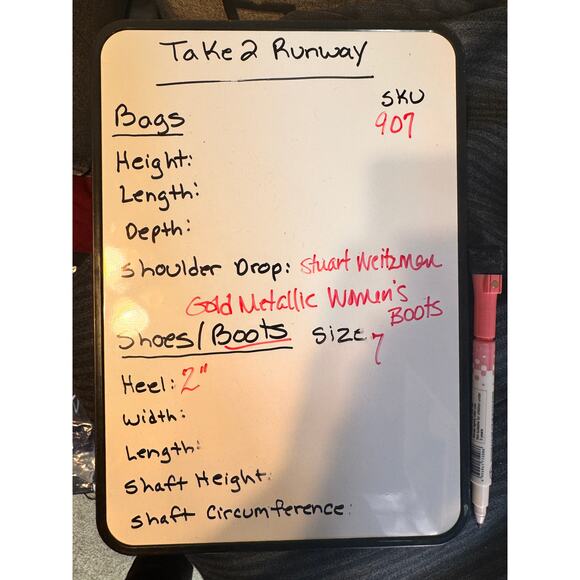 Take 2 Runway
SKU
Bags 907
Height:
Length:
Depth:
Shoulder Drop: Stuart Weitzman
Gold Metallic Women's
BOOTS
Shoes/Boots Size 7
Heel: 2"
Width:
Length:
Shaft Height:
Shaft Circumference: